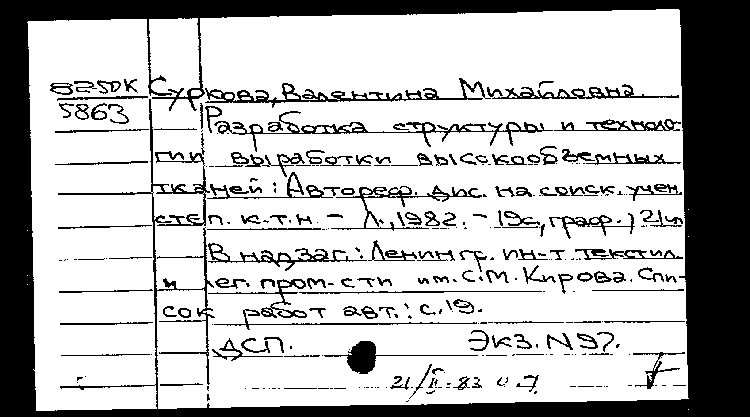 82-5DK Суркова, Валентина Михайловна.
5863 Разработка структуры и техноло-
гии выработки высокообъемных
тканей: Автореф. дис. на соиск. учен.
степ. к.т.н. - Л., 1982. - 19с, граф.; 21см
В надзаг.: Ленингр. ин-т текстил.
и лег. пром-сти им. С.М. Кирова. Спи-
сок работ авт.: с.19.
ДСП. Экз. N97.
21/II-83